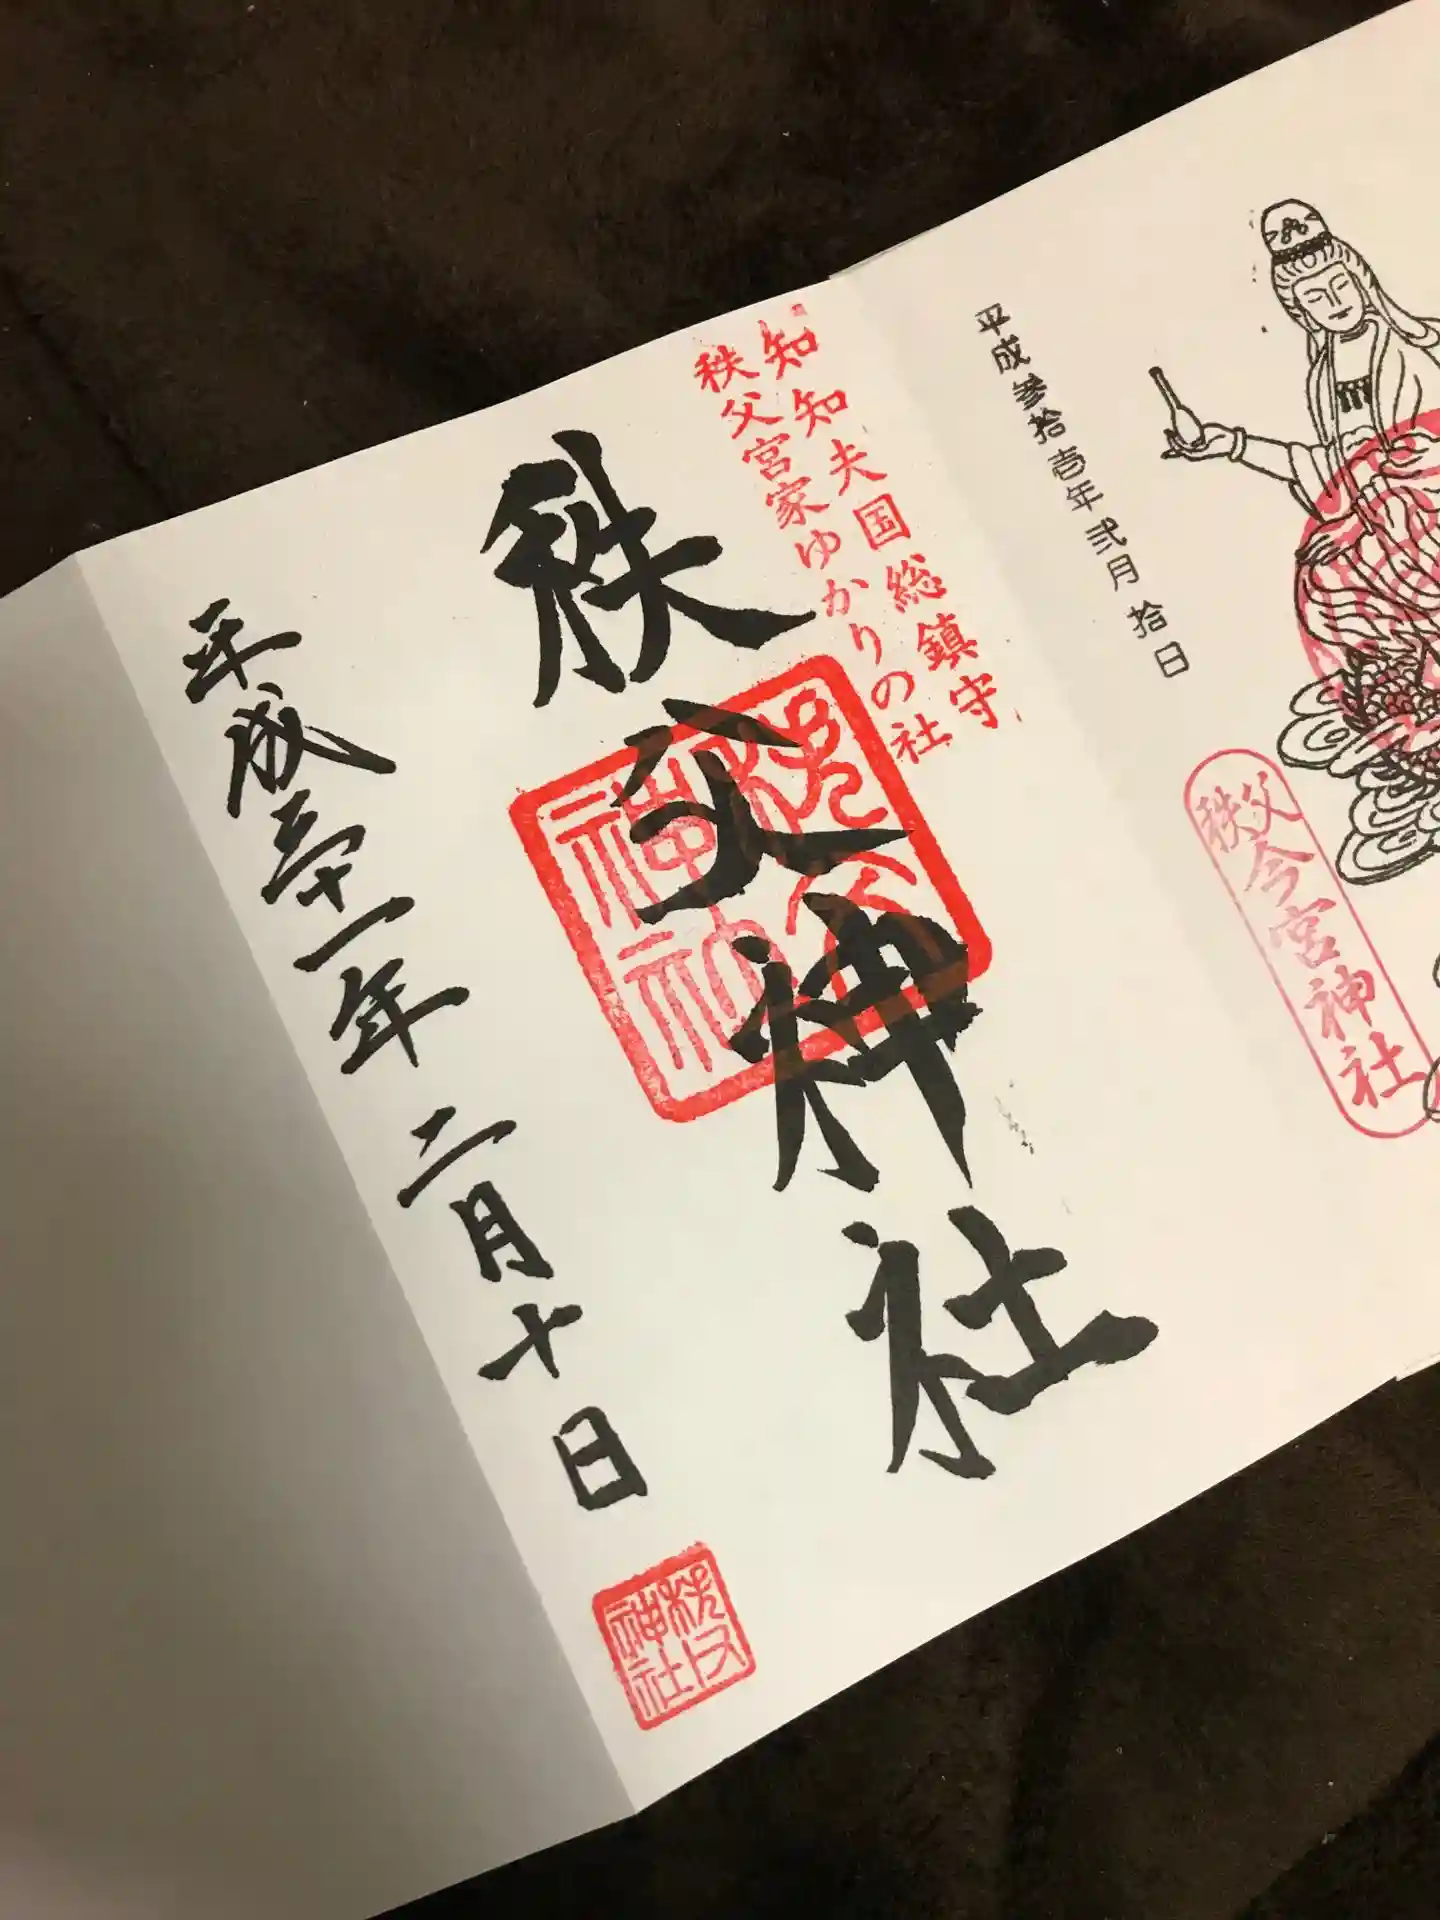 平成参拾壱年弐月拾日
秩父今宮神社
知知夫国総鎮守
秩父宮家ゆかりの社
秩父神社
平成三十一年二月十日
秩父
神社